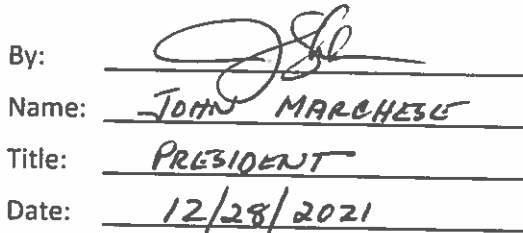 By:
Name: JOHN MARCHESE
Title: PRESIDENT
Date: 12/28/2021